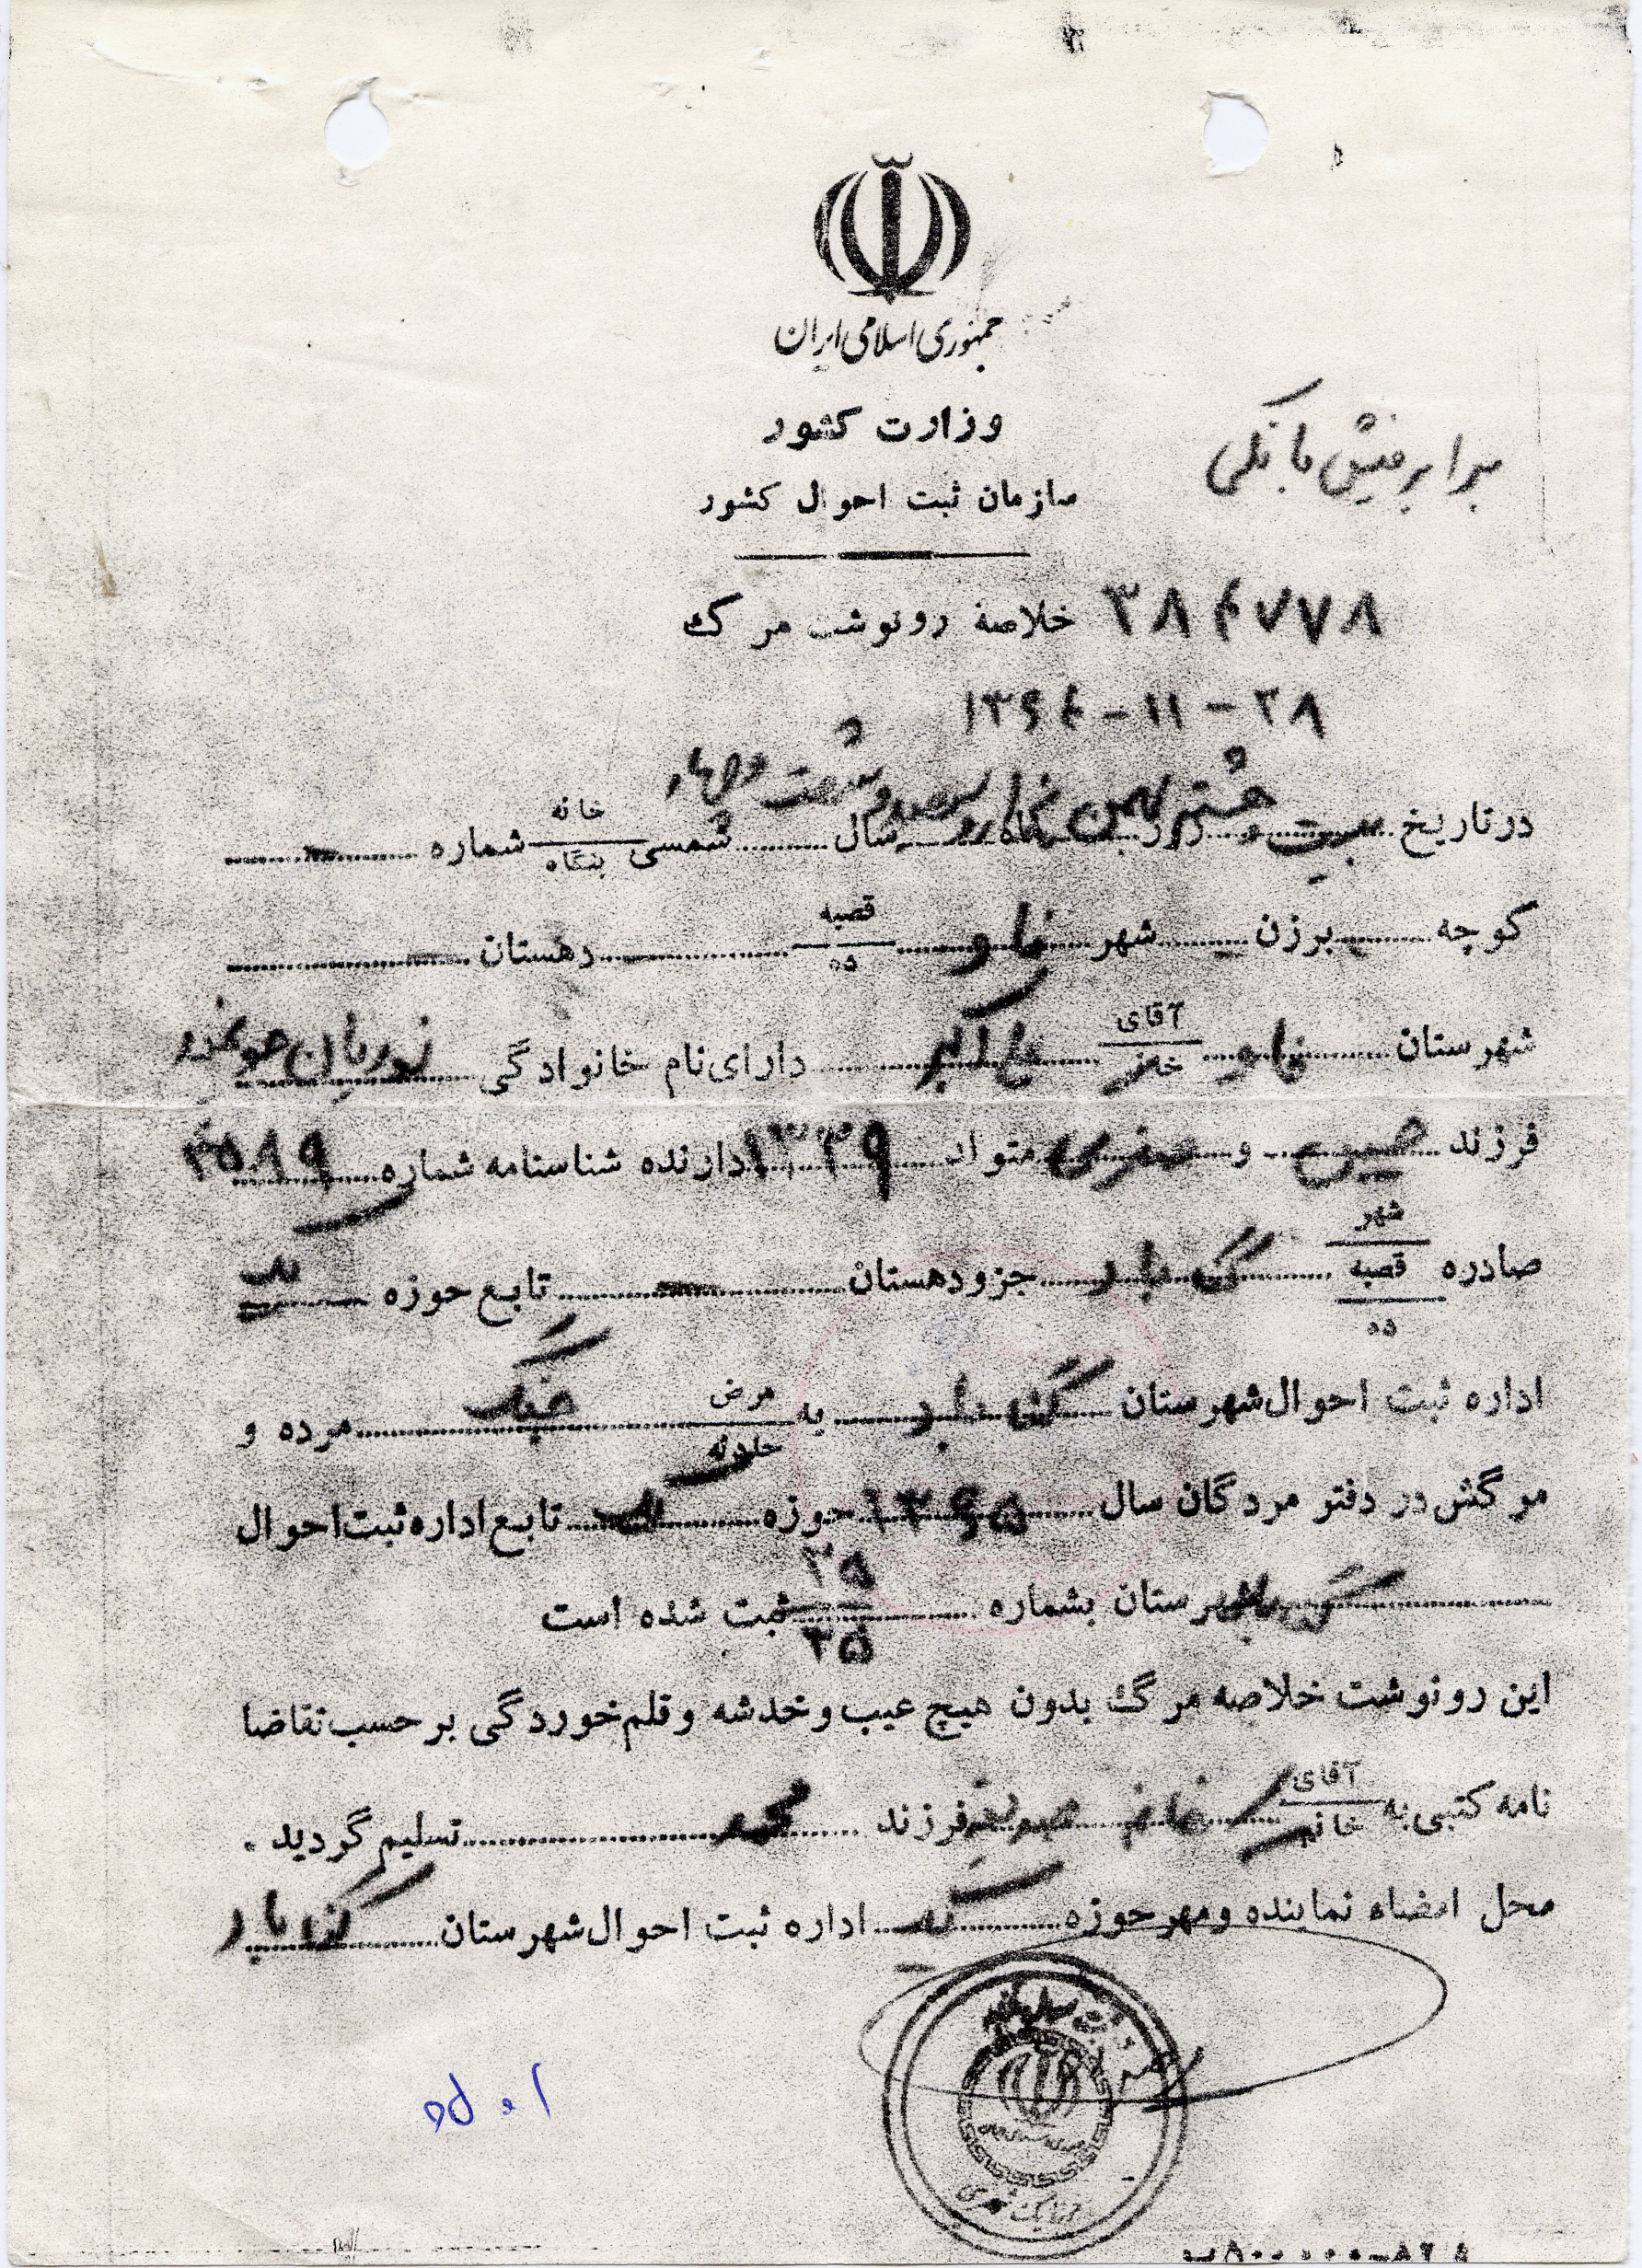 جمهوری اسلامی ایران
وزارت کشور
سازمان ثبت احوال کشور
برابر فیش بانکی
۳۸۴۷۷۸ خلاصه رونوشت مرگ
۱۳۶۴-۱۱-۲۸
در تاریخ بیست و هشتم روز بهمن ماه هزار و سیصد و شصت و چهار سال شمسی خانه بنگاه شماره
کوچه برزن شهر فاو قصبه ده دهستان
شهرستان فاو آقای خانم علی اکبر دارای نام خانوادگی
فرزند و صغری متولد ۱۳۳۹ دارنده شناسنامه شماره ۴۵۸۹
صادره شهر قصبه ده جزو دهستان تابع حوزه
اداره ثبت احوال شهرستان به مرض حادثه جنگ مرده و
مرگش در دفتر مردگان سال ۱۳۶۵ حوزه تابع اداره ثبت احوال
شهرستان بشماره ۳۸ ۳۵ ثبت شده است
این رونوشت خلاصه مرگ بدون هیچ عیب و خدشه و قلم خوردگی بر حسب تقاضا
نامه کتبی به آقای خانم فرزند محمد تسلیم گردید .
محل امضاء نماینده و مهر حوزه اداره ثبت احوال شهرستان